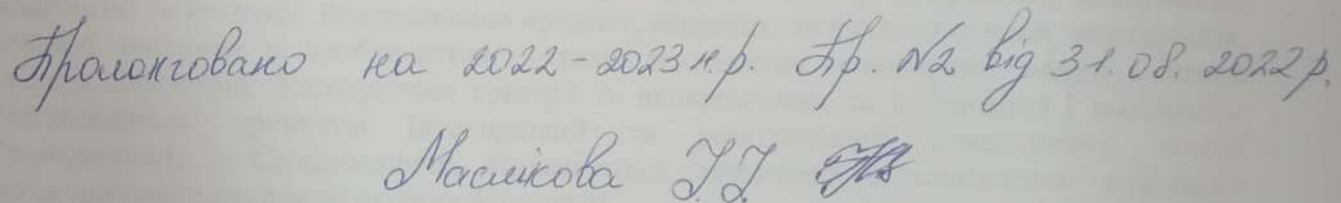 Пролонговано на 2022-2023 н.р. Пр. №2 від 31.08.2022 р.
Маслікова І.І.